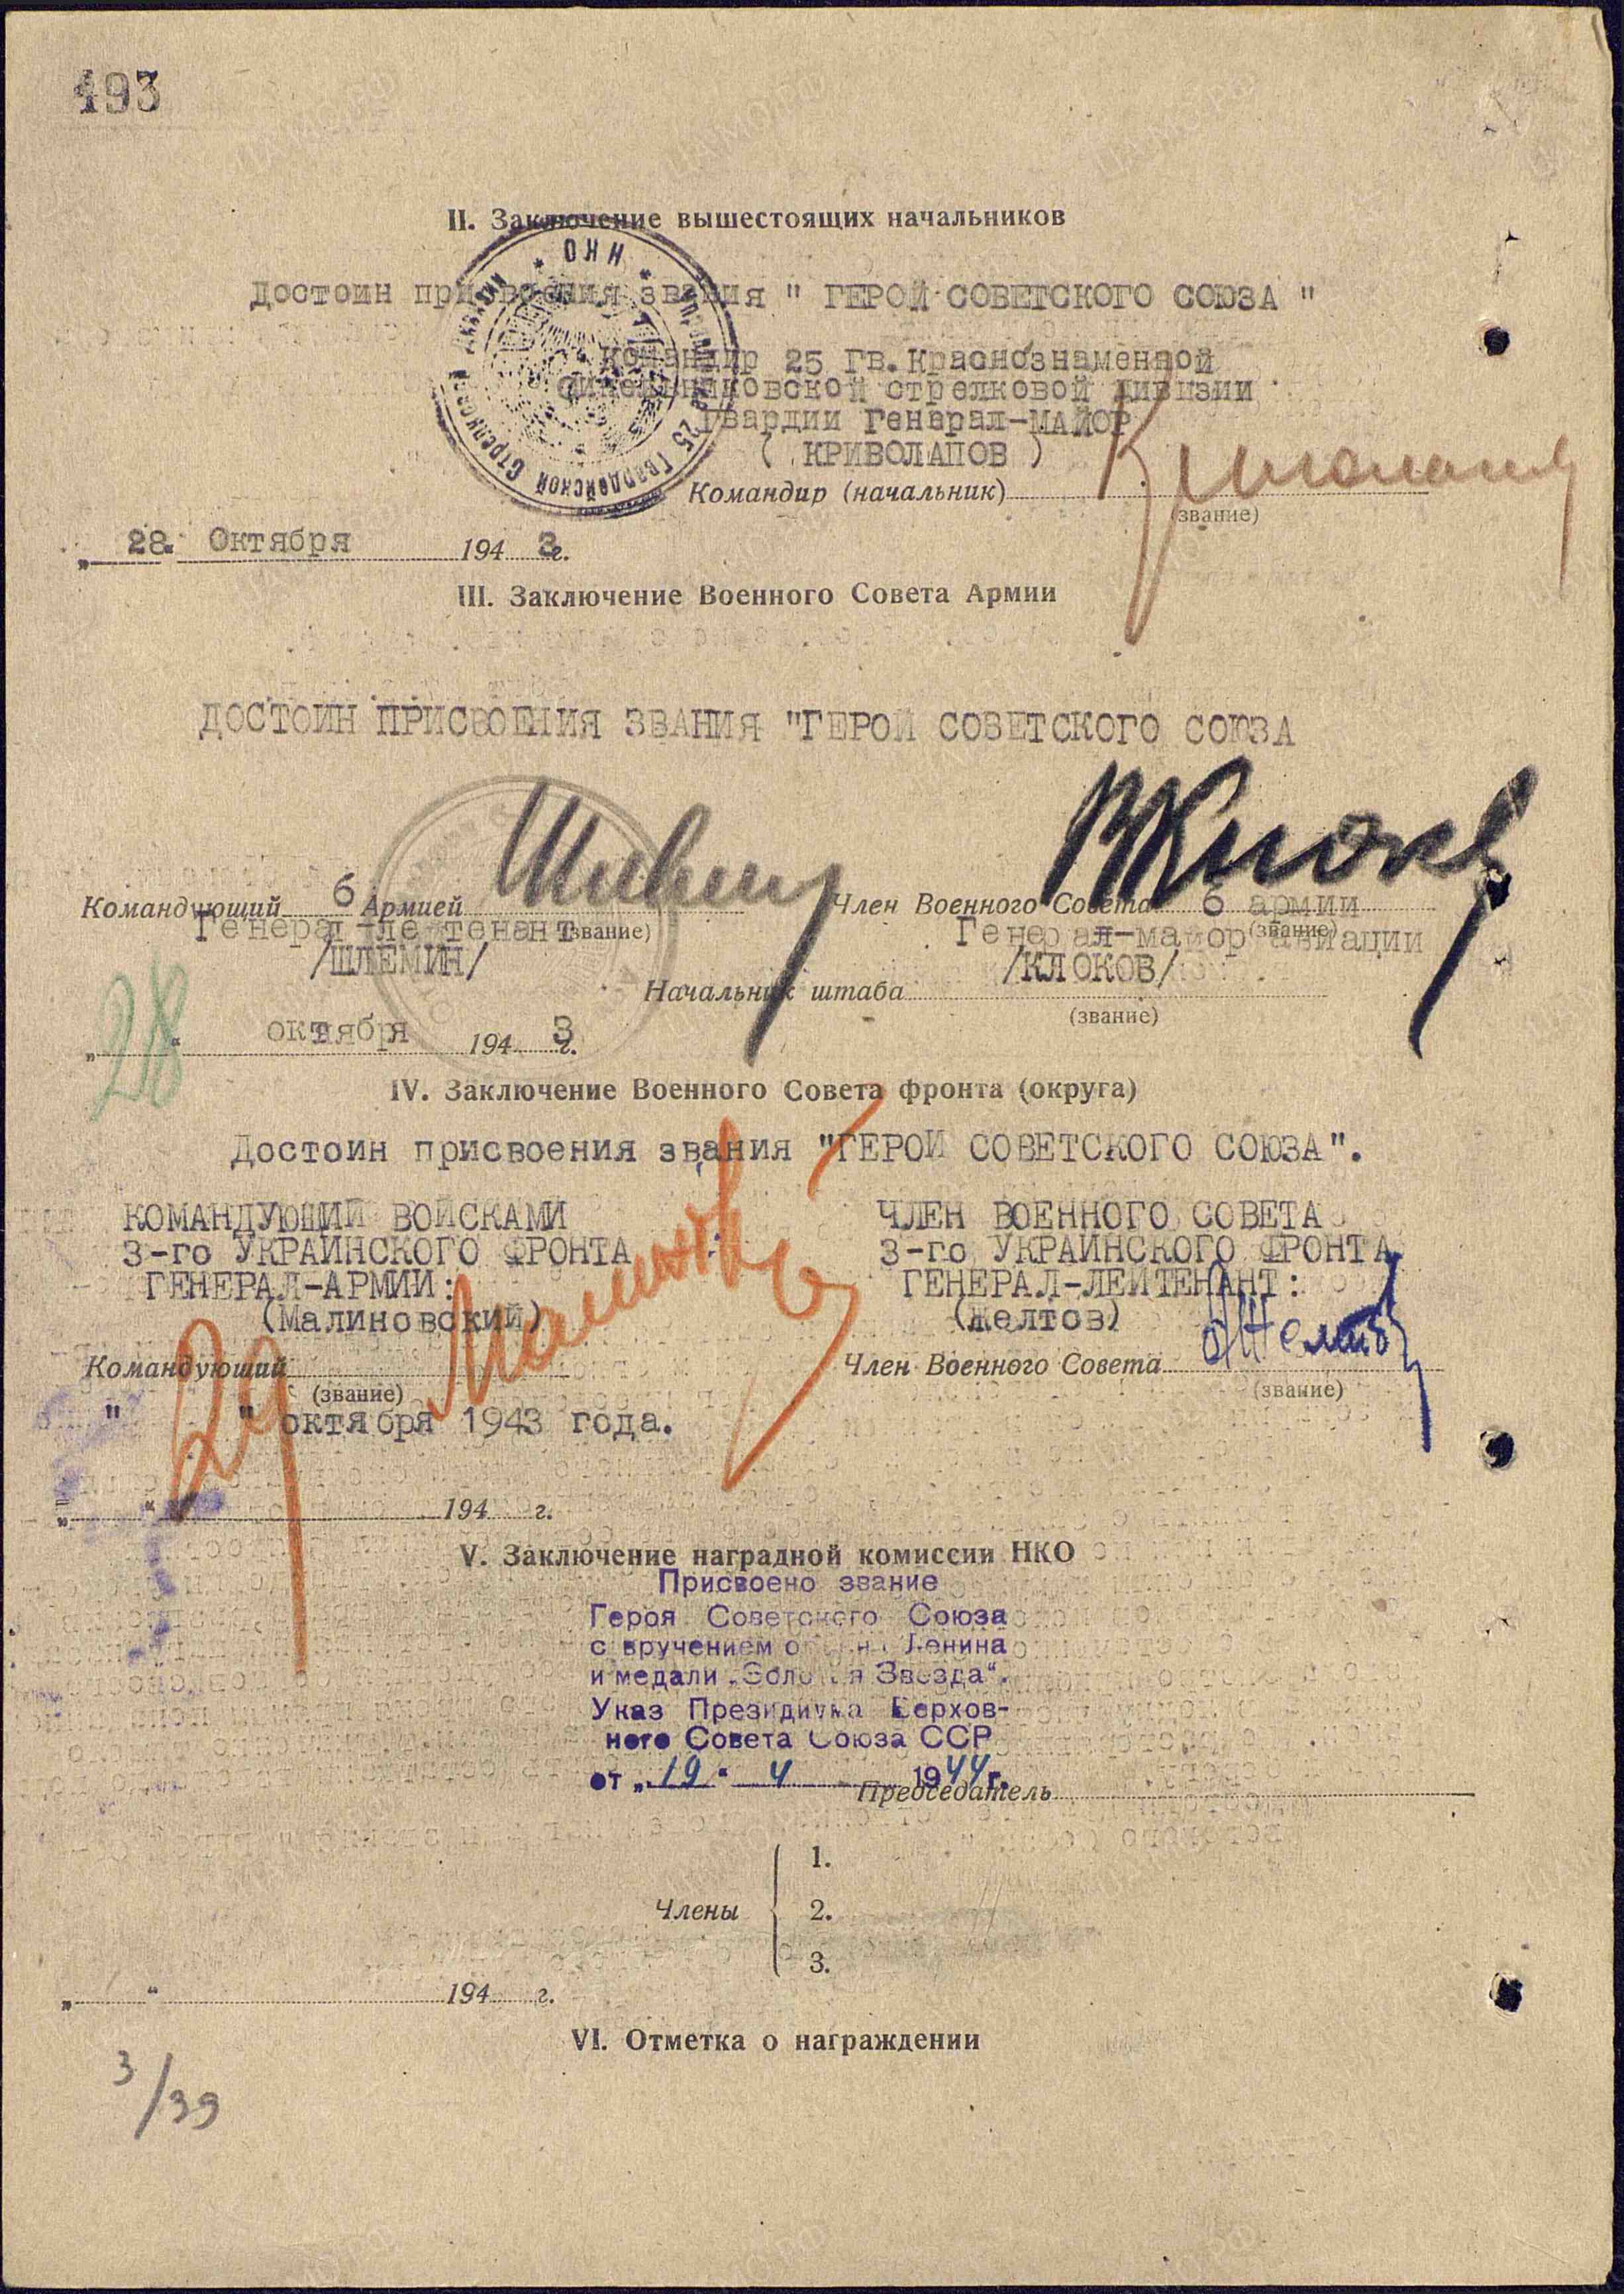 493
II. Заключение вышестоящих начальников
Достоин присвоения звания " ГЕРОЙ СОВЕТСКОГО СОЮЗА "
Командир 25 Гв. Краснознаменной
Синельниковской стрелковой дивизии
Гвардии Генерал-МАЙОР
( КРИВОЛАПОВ )
Командир (начальник)
(звание)
„28“ Октября 1943 г.
III. Заключение Военного Совета Армии
ДОСТОИН ПРИСВОЕНИЯ ЗВАНИЯ "ГЕРОЙ СОВЕТСКОГО СОЮЗА
Командующий 6 Армией Член Военного Совета 6 армии
Генерал-лейтенант (звание) Генерал-майор авиации (звание)
/ШЛЕМИН/ /КЛОКОВ/
Начальник штаба
(звание)
„28“ октября 1943 г.
IV. Заключение Военного Совета фронта (округа)
Достоин присвоения звания "ГЕРОЙ СОВЕТСКОГО СОЮЗА".
КОМАНДУЮЩИЙ ВОЙСКАМИ ЧЛЕН ВОЕННОГО СОВЕТА
3-го УКРАИНСКОГО ФРОНТА 3-го УКРАИНСКОГО ФРОНТА
ГЕНЕРАЛ-АРМИИ: ГЕНЕРАЛ-ЛЕЙТЕНАНТ:
(Малиновский) (Желтов)
Командующий Член Военного Совета
(звание) (звание)
"29" октября 1943 года.
„ “ 194 г.
V. Заключение наградной комиссии НКО
Присвоено звание
Героя Советского Союза
с вручением ордена Ленина
и медали „Золотая Звезда“.
Указ Президиума Верхов-
ного Совета Союза ССР
от „19“ 4 1944 г.
Председатель
Члены
1.
2.
3.
„ “ 194 г.
VI. Отметка о награждении
3/39